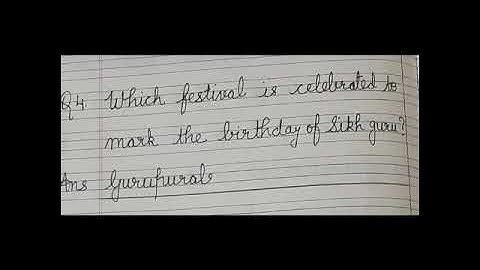 Q4. Which festival is celebrated to
mark the birthday of Sikh guru?
Ans Gurupurab